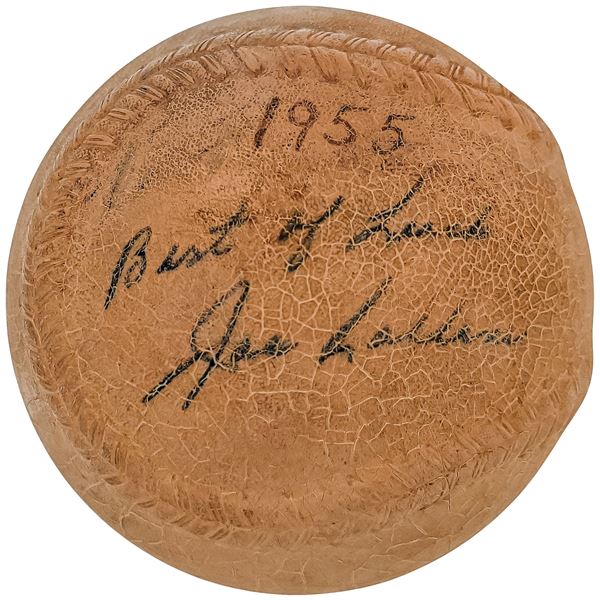 1955
Best of Luck
Joe